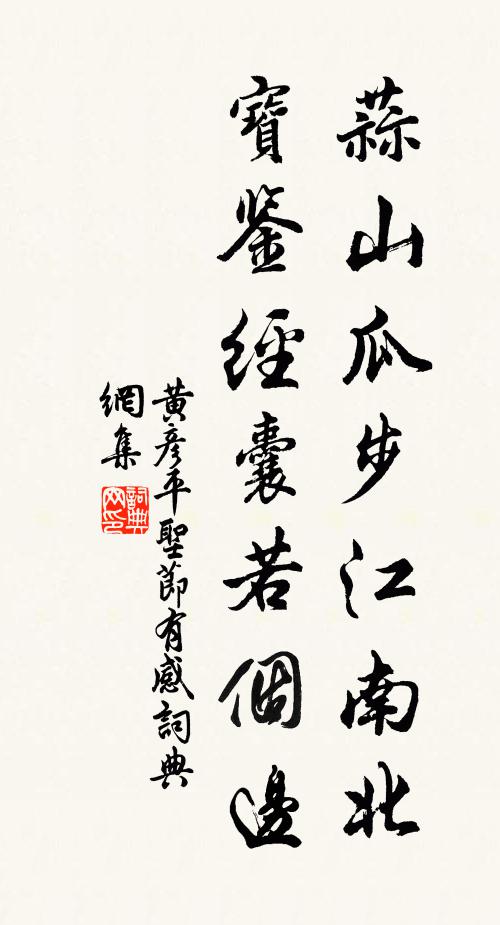 蒜山瓜步江南北
寶鉴經囊若個邊
黄彦平聖節有感詞典
網集
詞典
网印